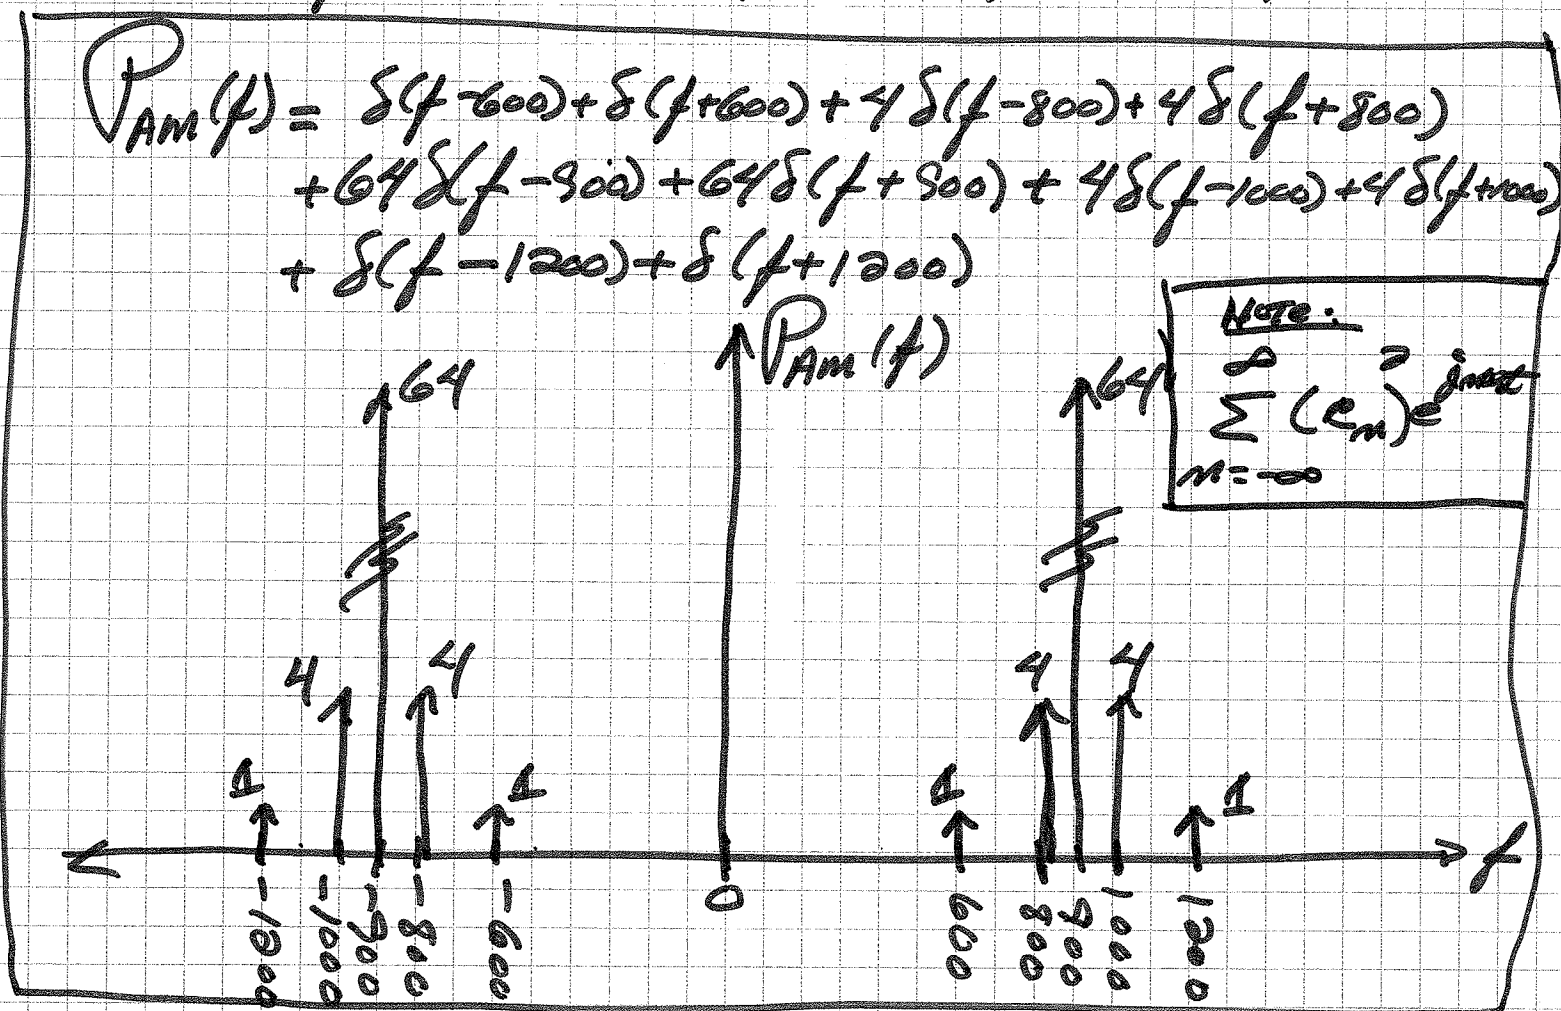 P_AM(f) = δ(f-600) + δ(f+600) + 4δ(f-800) + 4δ(f+800)
+ 64δ(f-900) + 64δ(f+900) + 4δ(f-1000) + 4δ(f+1000)
+ δ(f-1200) + δ(f+1200)
P_AM(f)
Note:
∞ 2
Σ (c_n) e
n=-∞
64
64
4
4
4
4
1
1
1
1
f
-1200
-1000
-900
-800
-600
0
600
800
900
1000
1200